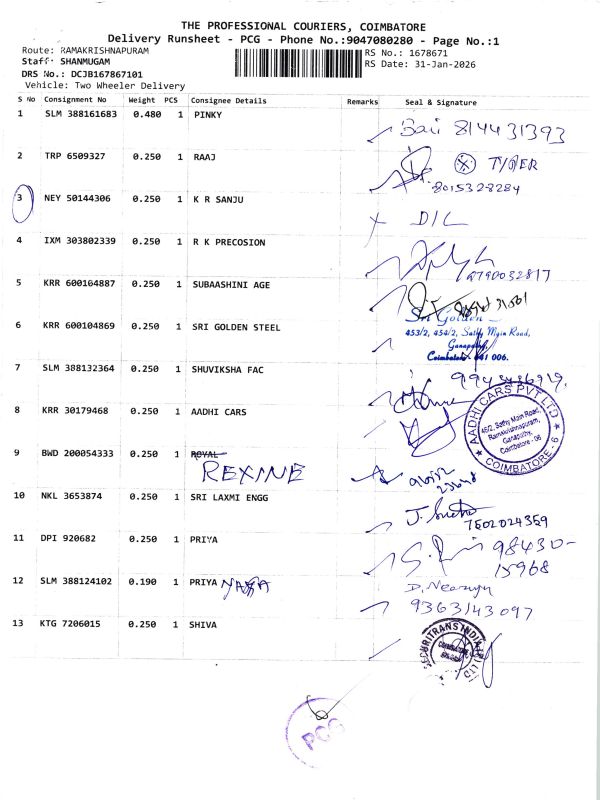 THE PROFESSIONAL COURIERS, COIMBATORE
Delivery Runsheet - PCG - Phone No.:9047080280 - Page No.:1
Route: RAMAKRISHNAPURAM
RS No.: 1678671
Staff: SHANMUGAM
RS Date: 31-Jan-2026
DRS No.: DCJB167867101
Vehicle: Two Wheeler Delivery
S No Consignment No Weight PCS Consignee Details Remarks Seal & Signature
1 SLM 388161683 0.480 1 PINKY
814431393
2 TRP 6509327 0.250 1 RAAJ
8015328284
3 NEY 50144306 0.250 1 K R SANJU
D/L
4 IXM 303802339 0.250 1 R K PRECOSION
9790032817
5 KRR 600164887 0.250 1 SUBAASHINI AGE
6 KRR 600104869 0.250 1 SRI GOLDEN STEEL
Sri Golden
453/2, 454/2, Sathy Main Road,
Ganapathy,
Coimbatore - 641 006.
7 SLM 388132364 0.250 1 SHUVIKSHA FAC
8 KRR 30179468 0.250 1 AADHI CARS
AADHI CARS PVT LTD
46/2, Sathy Main Road,
Ramakrishnapuram,
Ganapathy,
Coimbatore - 06
COIMBATORE - 6
9 BWD 200054333 0.250 1 ROYAL
REXINE
10 NKL 3653874 0.250 1 SRI LAXMI ENGG
7502024359
11 DPI 920682 0.250 1 PRIYA
98430-
15968
12 SLM 388124102 0.190 1 PRIYA
9363143097
13 KTG 7206015 0.250 1 SHIVA
SECURITRANS INDIA
PCG